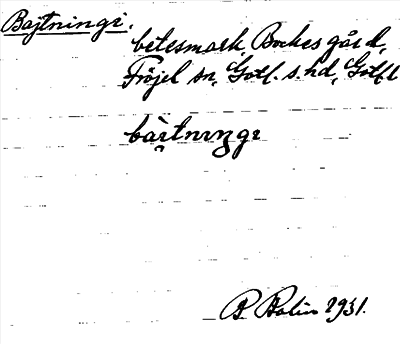 Bajtningi.
betesmark, Bockes gård,
Fröjel sn, Gotl. s. hd, Gotl. l
bàịtnıŋgı
B. Bolin 1931.